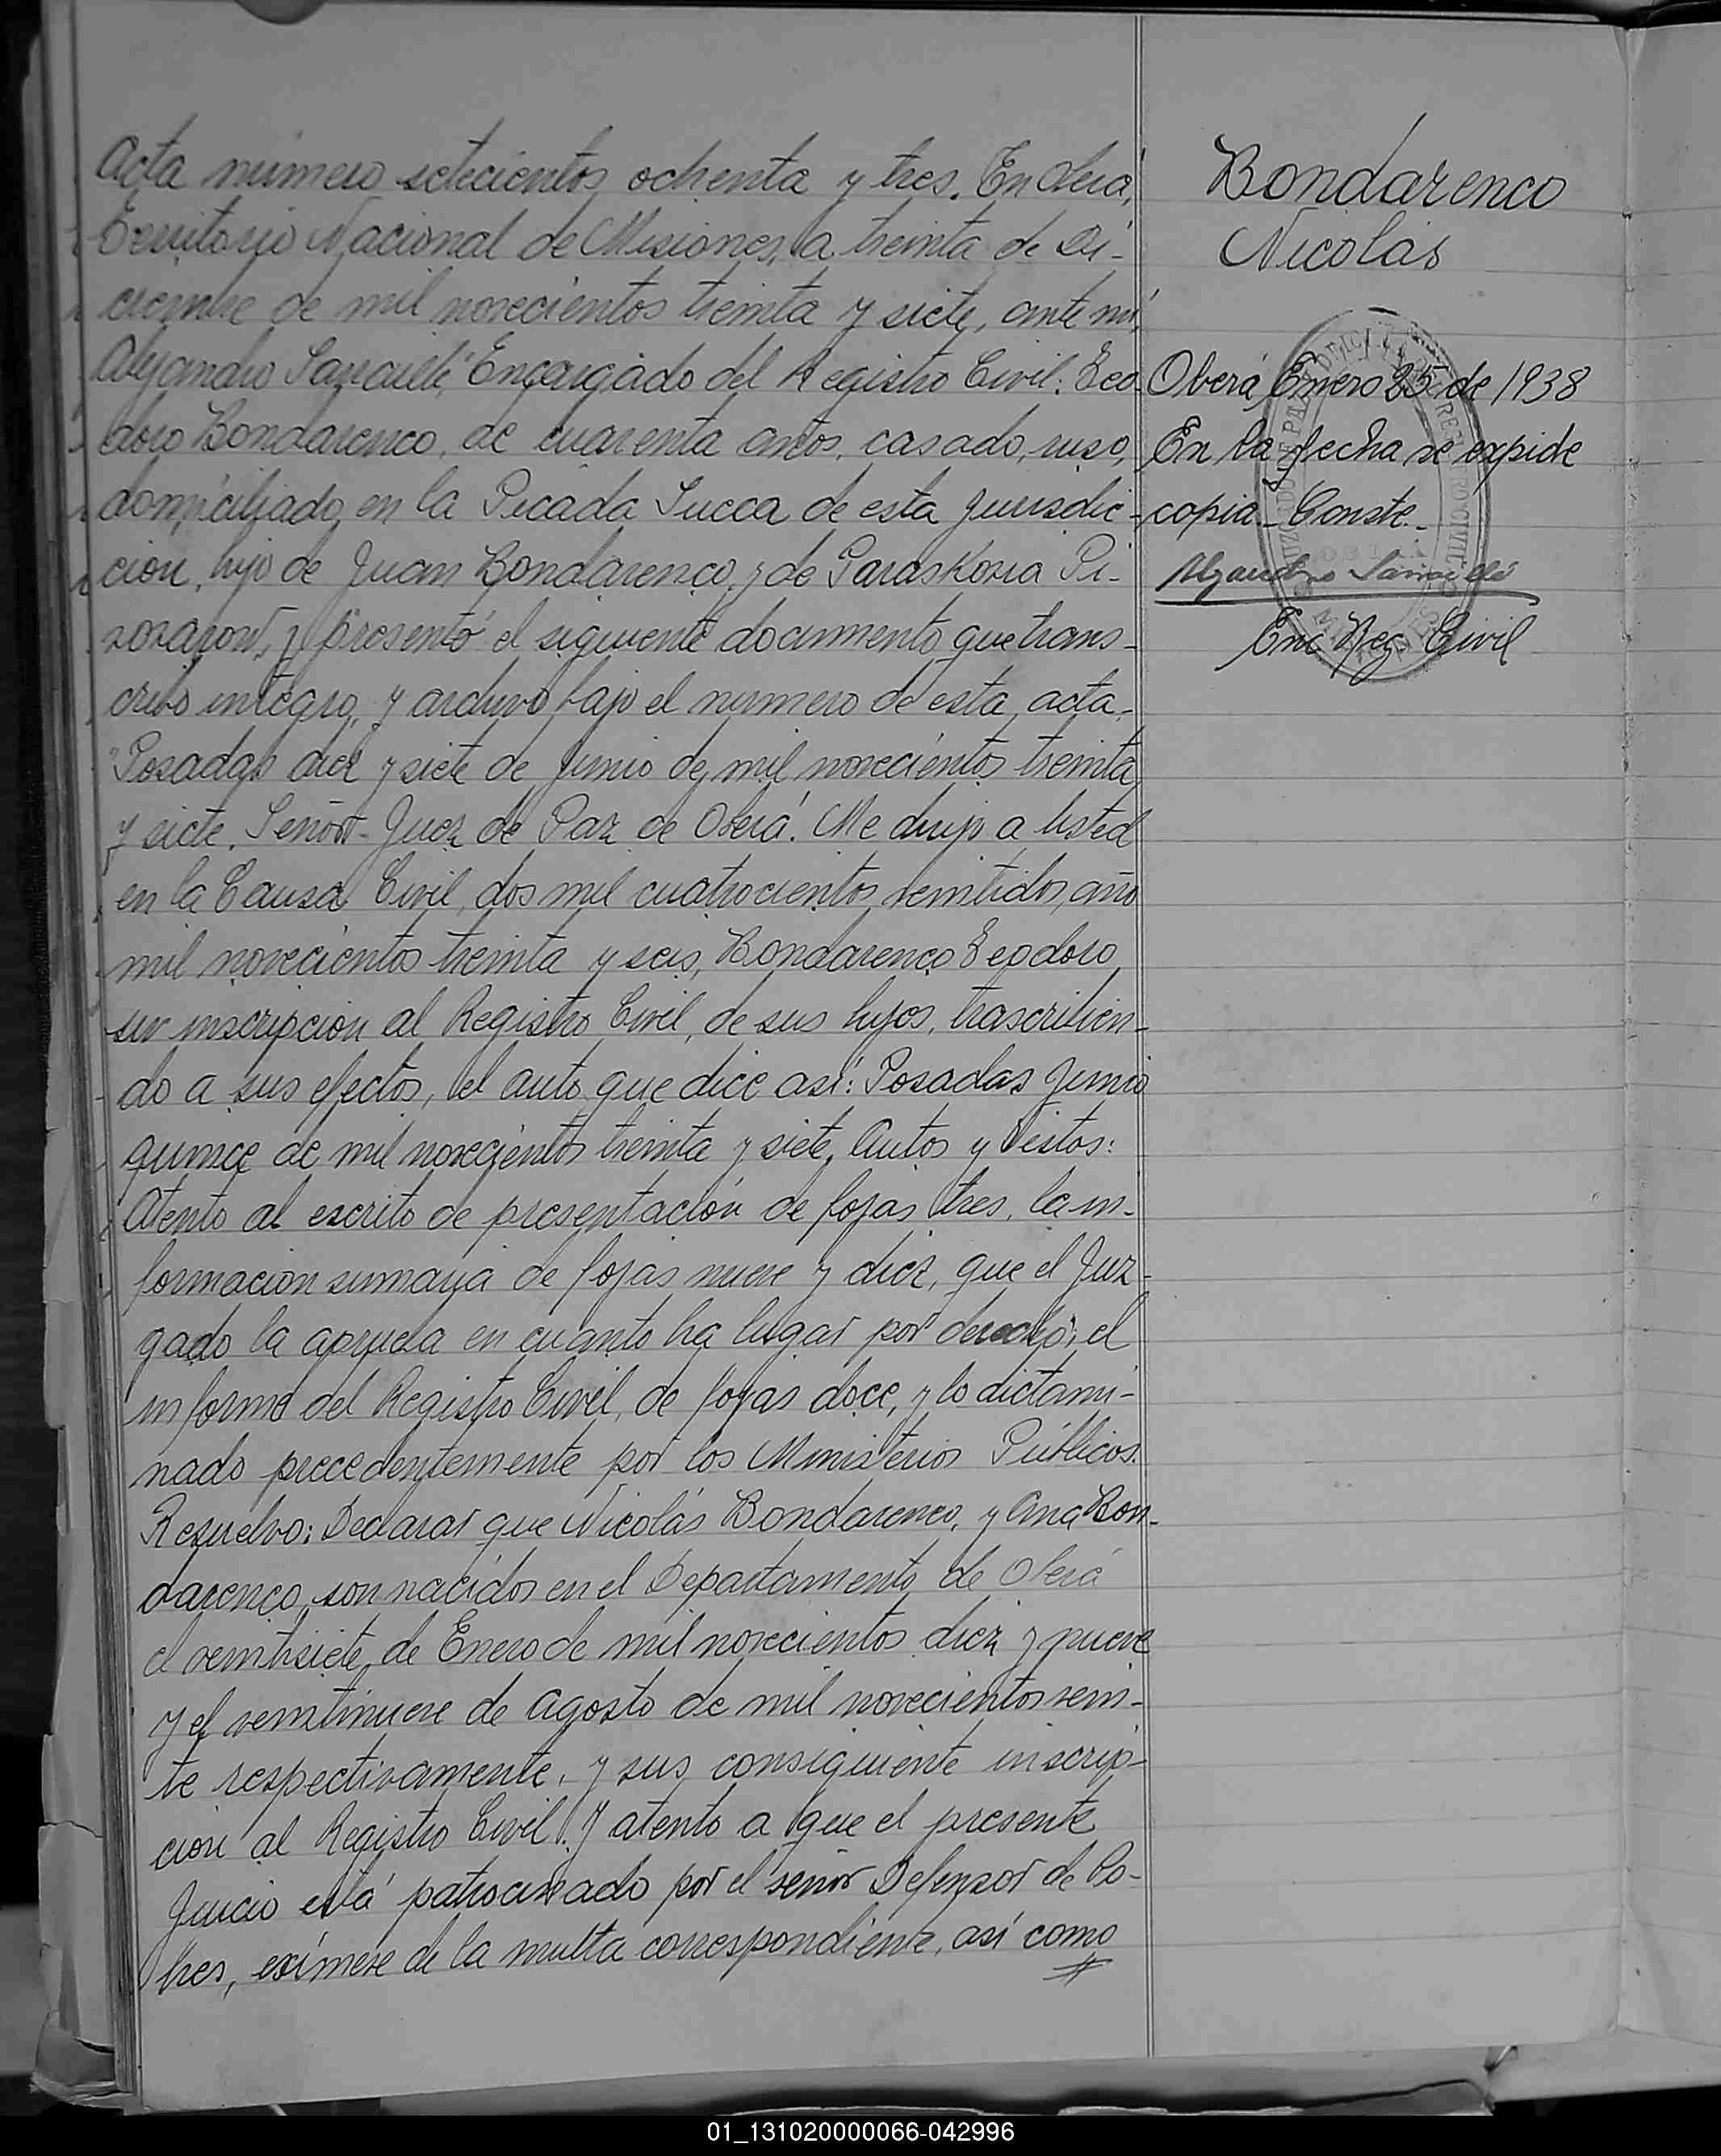 Acta número setecientos ochenta y tres. En Oberá,
Territorio Nacional de Misiones, a treinta de Di-
ciembre de mil novecientos treinta y siete, ante mí,
Alejandro Encargado del Registro Civil: Teo-
doro Bondarenco, de cuarenta años, casado, ruso,
domiciliado en la Picada Sueca de esta jurisdic-
ción, hijo de Juan Bondarenco, y de Paraskovia Pi-
y presentó el siguiente documento que trans-
cribo integro, y archivo bajo el numero de esta acta.
"Posadas diez y siete de Junio de mil novecientos treinta
y siete. Señor Juez de Paz de Oberá. Me dirijo a Usted
en la Causa Civil, dos mil cuatrocientos veintidos, año
mil novecientos treinta y seis, Bondarenco Teodoro
su inscripción al Registro Civil, de sus hijos, trascribien-
do a sus efectos, el auto que dice así: Posadas Junio
quince de mil novecientos treinta y siete, Autos y Vistos:
Atento al escrito de presentación de fojas tres, la in-
formacion sumaria de fojas nueve y diez, que el Juz-
gado la aprueba en cuanto ha lugar por derecho; el
informe del Registro Civil, de fojas doce, y lo dictami-
nado precedentemente por los Ministerios Públicos.
Resuelvo: Declarar que Nicolás Bondarenco, y Ana Bon-
darenco, son nacidos en el Departamento de Oberá
el veintisiete de Enero de mil novecientos diez y nueve
y el veintinueve de Agosto de mil novecientos vein-
te respectivamente, y sus consiguiente inscrip-
ción al Registro Civil. Y atento a que el presente
Juicio está patrocinado por el señor Defensor de Po-
bres, exímese de la multa correspondiente, así como
Bondarenco
Nicolás
Oberá, Enero 25 de 1938
En la fecha se expide
copia - Conste.-
Alejandro
Enc Reg. Civil
01_131020000066-042996